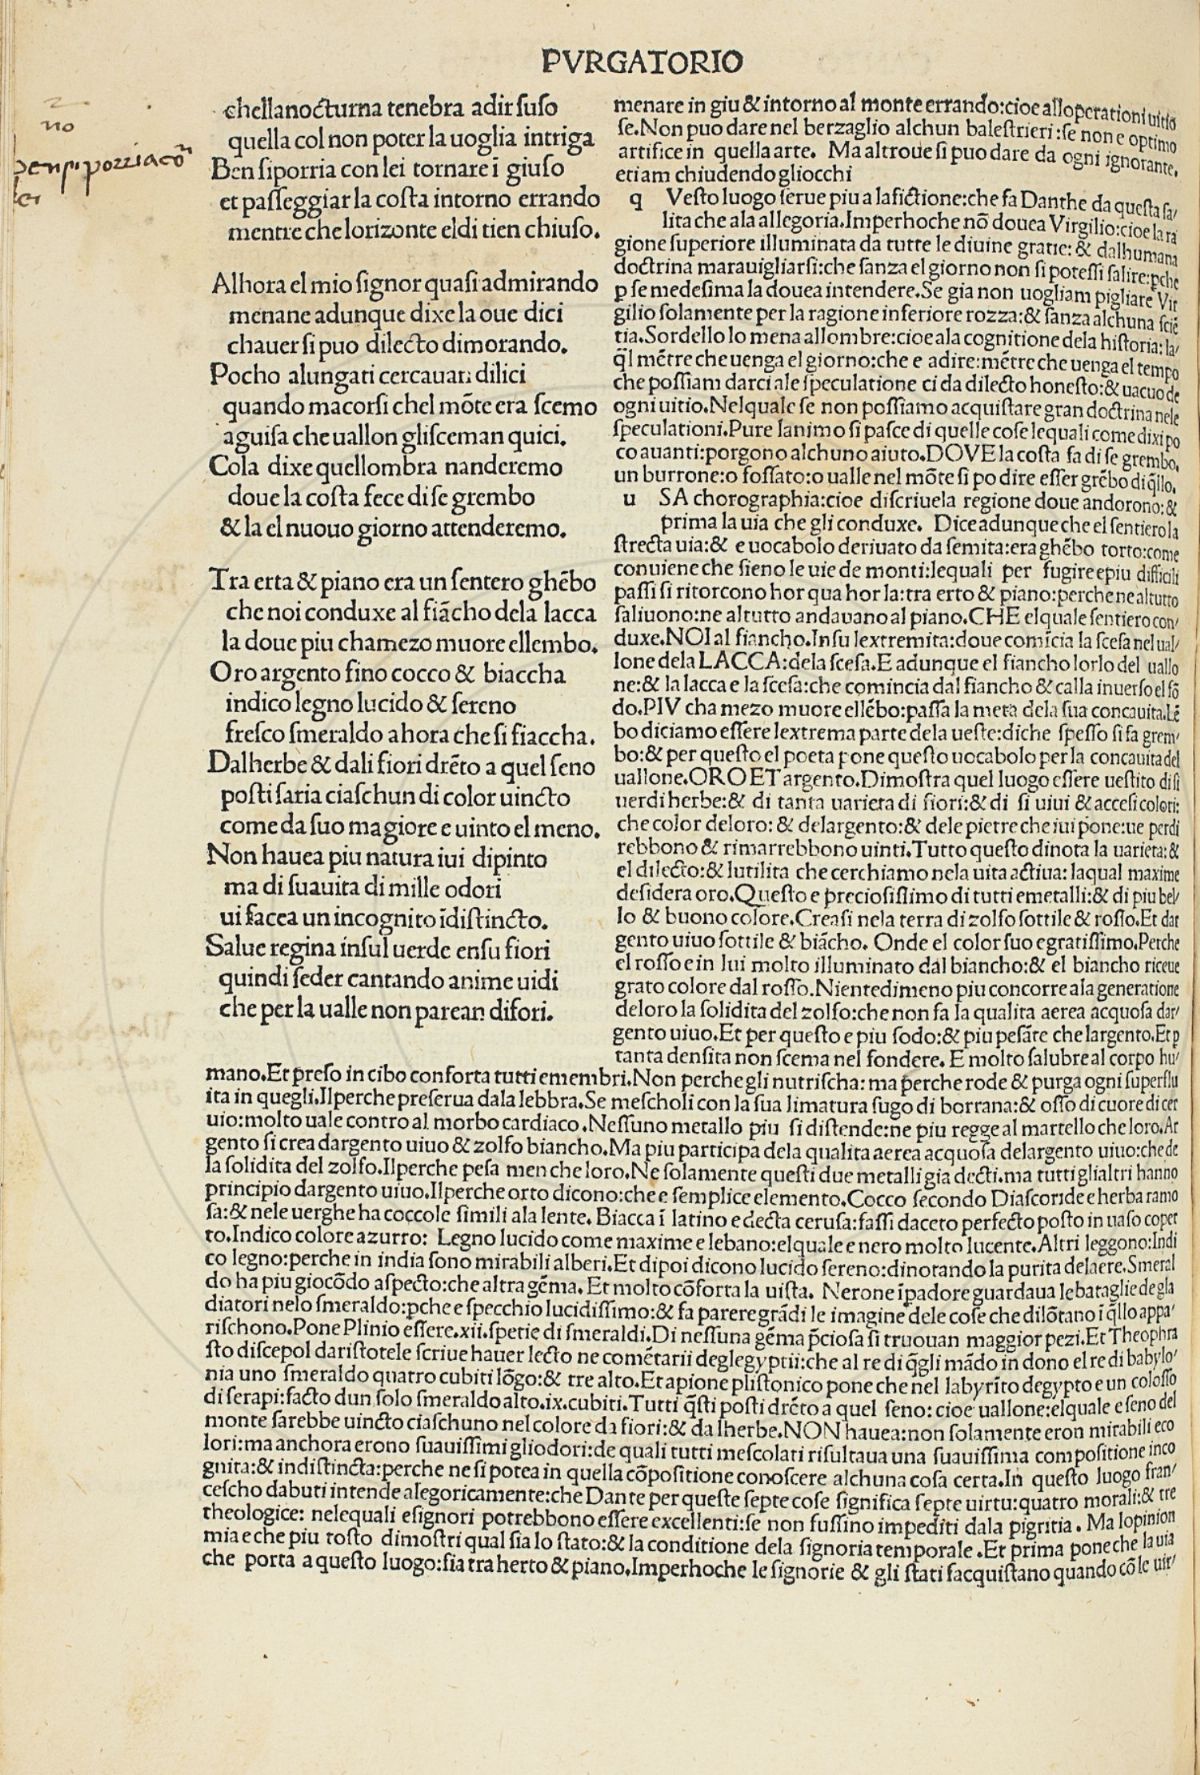 PVRGATORIO
no
ben si porria cō
lei
chella nocturna tenebra adir suso
quella col non poter la uoglia intriga
Ben siporria con lei tornare ī giuso
et passeggiar la costa intorno errando
mentre che lorizonte eldi tien chiuso.
Alhora el mio signor quasi admirando
menane adunque dixe la oue dici
chauer si puo dilecto dimorando.
Pocho alungati cercauan dilici
quando macorsi chel mōte era scemo
aguisa che uallon gli sceman quici.
Cola dixe quellombra nanderemo
doue la costa fece di se grembo
& la el nuouo giorno attenderemo.
Tra erta & piano era un sentero ghēbo
che noi conduxe al fiācho dela lacca
la doue piu chamezo muore ellembo.
Oro argento fino cocco & biaccha
indico legno lucido & sereno
fresco smeraldo ahora che si fiaccha.
Dalherbe & dali fiori drēto a quel seno
posti saria ciaschun di color uincto
come da suo magiore e uinto el meno.
Non hauea piu natura iui dipinto
ma di suauita di mille odori
ui facea un incognito īdistincto.
Salue regina insul uerde ensu fiori
quindi seder cantando anime uidi
che per la ualle non parean difori.
menare in giu & intorno al monte errando:cioe alloperationi uitio
se.Non puo dare nel berzaglio alchun balestrieri:se non e optimo
artifice in quella arte. Ma altroue si puo dare da ogni ignorante,
etiam chiudendo gliocchi
q Vesto luogo serue piu a lafictione:che fa Danthe da questa sa/
lita che ala allegoria.Imperhoche nō douea Virgilio:cioe la ra
gione superiore illuminata da tutte le diuine gratie: & dalhumana
doctrina marauigliarsi:che sanza el giorno non si potessi salire:pche
p se medesima la douea intendere.Se gia non uogliam pigliare Vir
gilio solamente per la ragione inferiore rozza:& sanza alchuna sciē
tia.Sordello lo mena allombre:cioe ala cognitione dela historia: la/
q̄l mētre che uenga el giorno:che e adire:mētre che uenga el tempo
che possiam darci ale speculatione ci da dilecto honesto:& uacuo de
ogni uitio.Nelquale se non possiamo acquistare gran doctrina nele
speculationi.Pure lanimo si pasce di quelle cose lequali come dixi po
co auanti:porgono alchuno aiuto.DOVE la costa fa di se grembo,
un burrone:o fossato:o ualle nel mōte si po dire esser grēbo di q̄llo.
u SA chorographia:cioe discriue la regione doue andorono:&
prima la uia che gli conduxe. Dice adunque che el sentiero la
strecta uia:& e uocabolo deriuato da semita:era ghēbo torto:come
conuiene che sieno le uie de monti:lequali per fugire epiu difficili
passi si ritorcono hor qua hor la:tra erto & piano:perche ne al tutto
saliuono:ne altutto andauano al piano.CHE elquale sentiero con/
duxe.NOI al fiancho.In su lextremita:doue comicia la scesa nel ual/
lone dela LACCA:dela scesa.E adunque el fiancho lorlo del uallo
ne:& la lacca e la scesa:che comincia dal fiancho & calla inuerso el fō
do.PIV cha mezo muore ellēbo:passa la meta dela sua concauita.Lē
bo diciamo essere lextrema parte dela ueste:diche spesso si fa grem/
bo:& per questo el poeta pone questo uocabolo per la concauita del
uallone.ORO ET argento.Dimostra quel luogo essere uestito di si
uerdi herbe:& di tanta uarieta di fiori:& di si uiui & accesi colori:
che color deloro: & delargento:& dele pietre che iui pone:ue perdi
rebbono & rimarrebbono uinti.Tutto questo dinota la uarieta:&
el dilecto:& lutilita che cerchiamo nela uita actiua: laqual maxime
desidera oro.Questo e preciosissimo di tutti emetalli:& di piu bel/
lo & buono colore.Creasi nela terra di zolfo sottile & rosso.Et dar
gento uiuo sottile & biācho. Onde el color suo e gratissimo.Perche
el rosso e in lui molto illuminato dal biancho:& el biancho riceue
grato colore dal rosso.Nientedimeno piu concorre ala generatione
deloro la solidita del zolfo:che non fa la qualita aerea acquosa dar/
gento uiuo.Et per questo e piu sodo:& piu pesāre che largento.Et p
tanta densita non scema nel fondere. E molto salubre al corpo hu/
mano.Et preso in cibo conforta tutti emembri.Non perche gli nutrischa: ma perche rode & purga ogni superflu
ita in quegli.Ilperche preserua dala lebbra.Se mescholi con la sua limatura sugo di borrana:& osso di cuore di cer
uio:molto uale contro al morbo cardiaco.Nessuno metallo piu si distende:ne piu regge al martello che loro.Ar
gento si crea dargento uiuo & zolfo biancho.Ma piu participa dela qualita aerea acquosa delargento uiuo:che de
la solidita del zolfo.Ilperche pesa men che loro.Ne solamente questi due metalli gia decti.ma tutti glialtri hanno
principio dargento uiuo.Ilperche orto dicono:che e semplice elemento.Cocco secondo Diascoride e herba ramo
sa:& nele uerghe ha coccole simili ala lente. Biacca ī latino e decta cerusa:fassi daceto perfecto posto in uaso coper
to.Indico colore azurro: Legno lucido come maxime e lebano:elquale e nero molto lucente.Altri leggono:Indi
co legno:perche in india sono mirabili alberi.Et dipoi dicono lucido sereno:dinotando la purita delaere.Smeral
do ha piu giocōdo aspecto:che altra gēma. Et molto cōforta la uista. Nerone īpadore guardaua le bataglie de gla
diatori nelo smeraldo:pche e specchio lucidissimo:& fa parere grādi le imagine dele cose che dilōtano ī q̄llo appa/
rischono.Pone Plinio essere.xii.spetie di smeraldi.Di nessuna gēma p̄ciosa si truouan maggior pezi.Et Theophra
sto discepol daristotele scriue hauer lecto ne comētarii deglegyptii:che al re di q̄gli mādo in dono el re di babylo/
nia uno smeraldo quatro cubiti lōgo:& tre alto.Et apione plistonico pone che nel labyrīto degypto e un colosso
di serapi:facto dun solo smeraldo alto.ix.cubiti.Tutti q̄sti posti drēto a quel seno: cioe uallone:elquale e seno del
monte sarebbe uincto ciaschuno nel colore da fiori:& da lherbe.NON hauea:non solamente eron mirabili eco
lori:ma anchora erono suauissimi gliodori:de quali tutti mescolati risultaua una suauissima compositione inco
gnita:& indistincta:perche ne si potea in quella cōpositione conoscere alchuna cosa certa.In questo luogo fran/
cescho dabuti intende alegoricamente:che Dante per queste septe cose significa septe uirtu:quatro morali:& tre
theologice: nelequali esignori potrebbono essere excellenti:se non fussino impediti dala pigritia. Ma lopinion
mia e che piu tosto dimostri qual sia lo stato:& la conditione dela signoria temporale.Et prima pone che la uia
che porta a questo luogo:sia tra herto & piano.Imperhoche le signorie & gli stati sacquistano quando cō le uir/